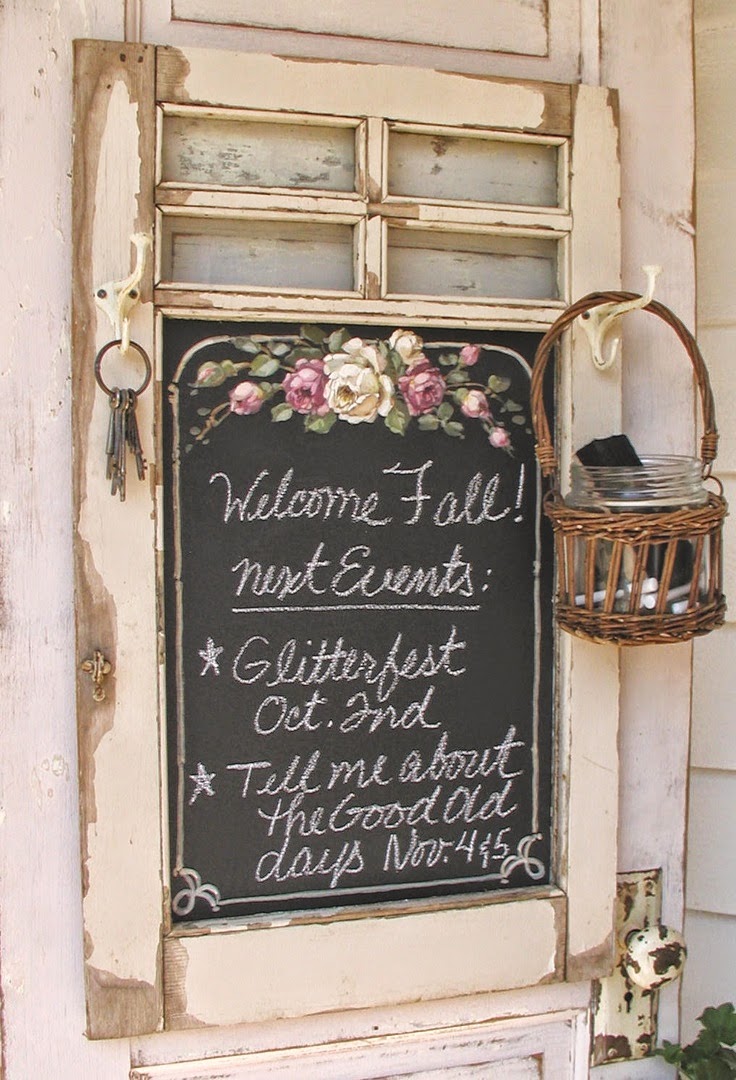 Welcome Fall!
next Events:
☆ Glitterfest
Oct. 2nd
☆ Tell me about
the Good Old
days Nov. 4&5